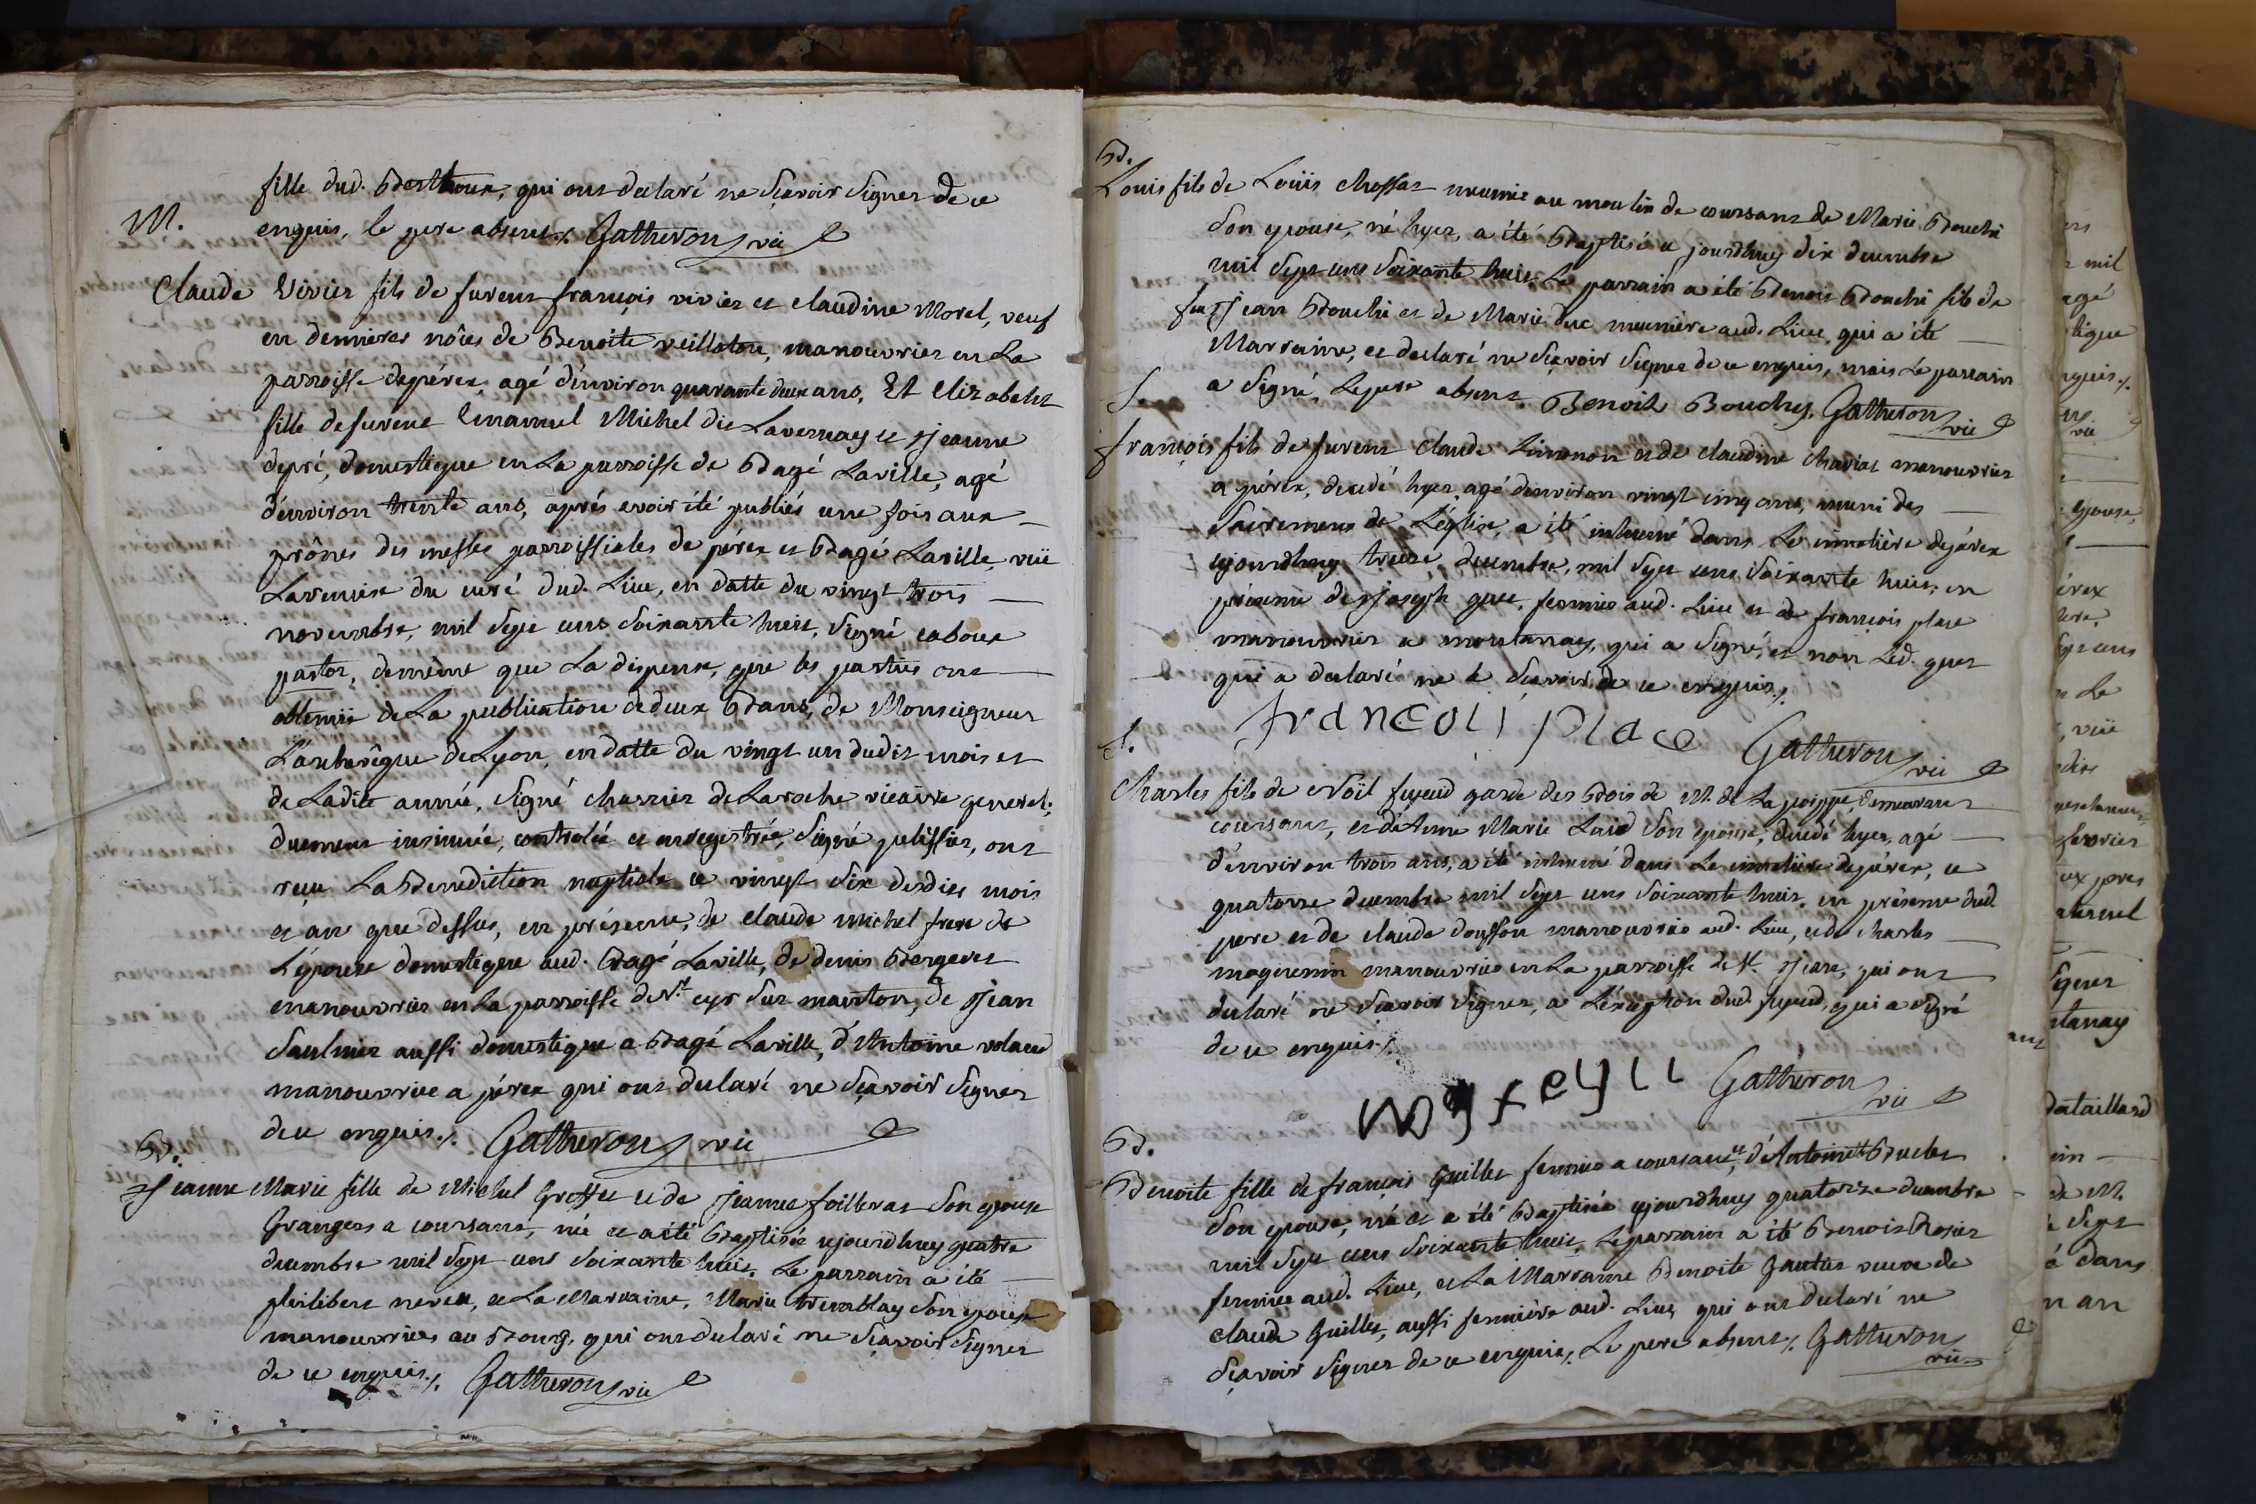 fille dud. Berthoux, qui ont declaré ne sçavoir signer de ce
M.
enquis, le pere absent./. Gatheron vic
Claude Vivier fils de furent françois vivier et claudine Morel, veuf
en dernieres nôces de Benoite veillatou, manouvrier en la
parroisse de pérex, agé d'environ quarante deux ans, Et Elizabeth
fille de furent Emanuel Michel dit Lavernay et Jeanne
depré, domestique en la parroisse de Bagé Laville, agé
d'environ trente ans, aprés avoir été publiés une fois aux
prônes des messes parroissiales de pérex et Bagé Laville, vüe
La remise du curé dud. Lieu, en datte du vingt trois
novembre, mil sept cens soixante huit, signé caboux
pastor, demême que La dispense, que les parties ont
obtenüe de La publication de deux Bans, de Monseigneur
L'archevêque de Lyon, en datte du vingt un dudit mois et
de Ladite année, signé charrier de Laroche vicaire general;
duement insinuée, controlée et enregistrée, signé pelissier, ont
reçu La Benediction nuptiale ce vingt six desdits mois
et an que dessus, en présence, de claude michel frere de
L'épouse domestique aud. Bagé Laville, de denis Bergeret
manouvrier en La parroisse de St. cyr sur menton, de Jean
Saulnier aussi domestique a Bagé Laville, d'Antoine volaud
manouvrier a pérex qui ont declaré ne sçavoir signer
de ce enquis./. Gatheron vic
B.
Jeanne Marie fille de Michel Grosset et de Jeanne foilleras son epouse
Grangers a coursant, née et a été Baptisée cejourdhuy quatre
decembre mil sept cens soixante huit. Le parrain a été
philibert neveu, et La Marraine, Marie tremblay son epouse
manouvriers au Bourg, qui ont declaré ne sçavoir signer
de ce enquis./. Gatheron vic
B.
Louis fils de Loüis chossat meunier au moulin de coursant de Marie Bouchi
son epouse, né hyer, a été Baptisé ce jourdhuy dix decembre
mil sept cens soixante huit. Le parrain a été Benoit Bouchi fils de
feu Jean Bouchi et de Marie duc meunière aud. Lieu, qui a été
Marraine, et declaré ne sçavoir signer de ce enquis, mais Le parrain
a signé, Le pere absent. Benoit Bouchy. Gatheron vic
S.
françois fils de furent Claude Limonon et de claudine chariat manouvrier
a pérex, decedé hyer, agé d'environ vingt cinq ans, muni des
Sacremens de L'église, a été inhumé dans Le cimetière de pérex
cejourdhuy treize decembre, mil sept cens soixante huit, en
présence de Joseph guet, fermier aud. Lieu et de françois place
manouvrier a montanay, qui a signé, et non Led. guet
qui a declaré ne le sçavoir de ce enquis./.
franCois place Gatheron vic
S.
Charles fils de Noël feyeud garde des Bois de M. de La poippe demeurant
coursant, et d'Anne Marie Laid son epouse, decedé hyer, agé
d'environ trois ans, a été inhumé dans Le cimetière de pérex, ce
quatorze decembre mil sept cens soixante huit, en présence dud.
pere et de claude douffou manouvrier aud. Lieu, et de charles
maguenin manouvrier en La parroisse de St. Jean, qui ont
declaré ne sçavoir signer, a L'exception dud. feyeud, qui a signé
de ce enquis./.
Gatheron vic
B.
Benoite fille de françois Guillet fermier a coursant, et d'Antoinette Buclet
son epouse, née et a été Baptisée cejourdhuy quatorze decembre
mil sept cens soixante huit, Le parrain a été Benoit Rosier
fermier aud. Lieu, et La Marraine Benoite Gautier veuve de
claude Guillet, aussi fermière aud. Lieu, qui ont declaré ne
sçavoir signer de ce enquis./. Le pere absent./. Gatheron vic